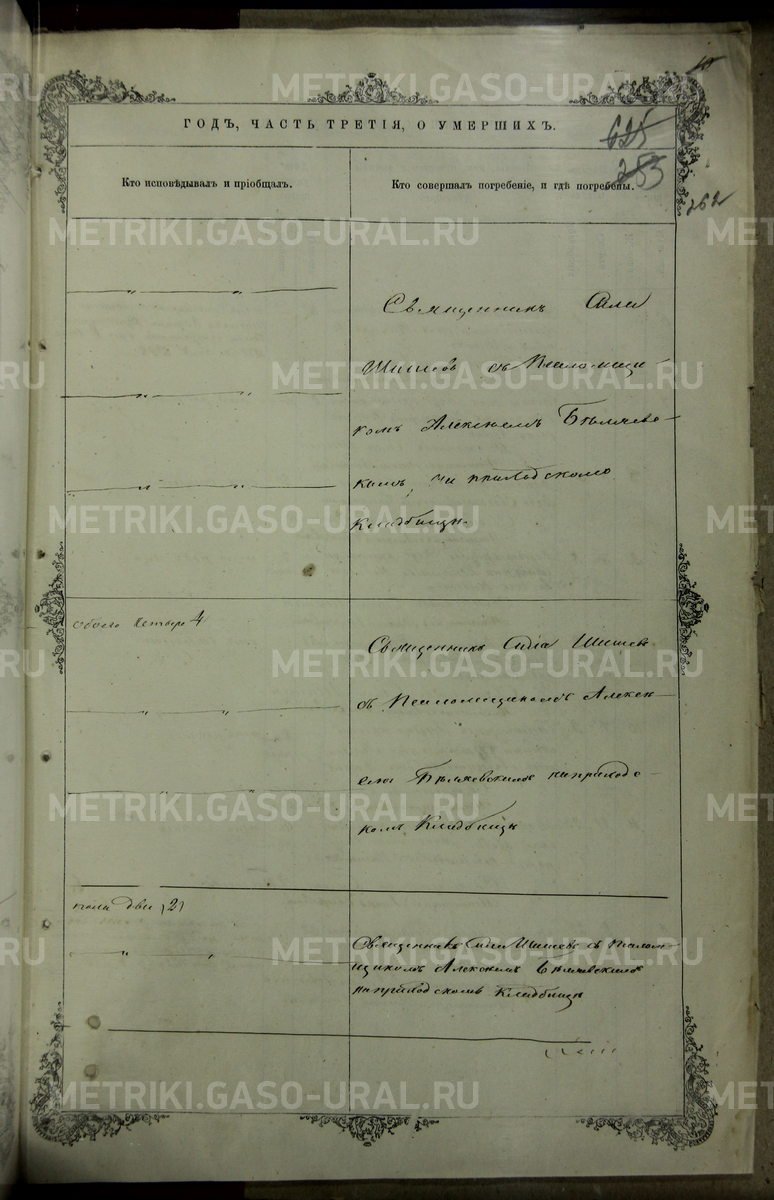 625
253
262
ГОДЪ, ЧАСТЬ ТРЕТІЯ, О УМЕРШИХЪ.
Кто исповѣдывалъ и пріобщалъ.
Кто совершалъ погребеніе, и гдѣ погребены.
Священникъ Сила
Шишевъ съ Псаломщи
комъ Алексѣемъ Бѣляевс
кимъ, на приходскомъ
Кладбищѣ.
обоего четыре 4
Священникъ Сила Шишевъ
съ Псаломщикомъ Алексѣ
емъ на приходс
комъ Кладбищѣ
пола два (2)
Священникъ Сила Шишевъ съ Псалом
щикомъ Алексѣемъ
на приходскомъ Кладбищѣ
METRIKI.GASO-URAL.RU